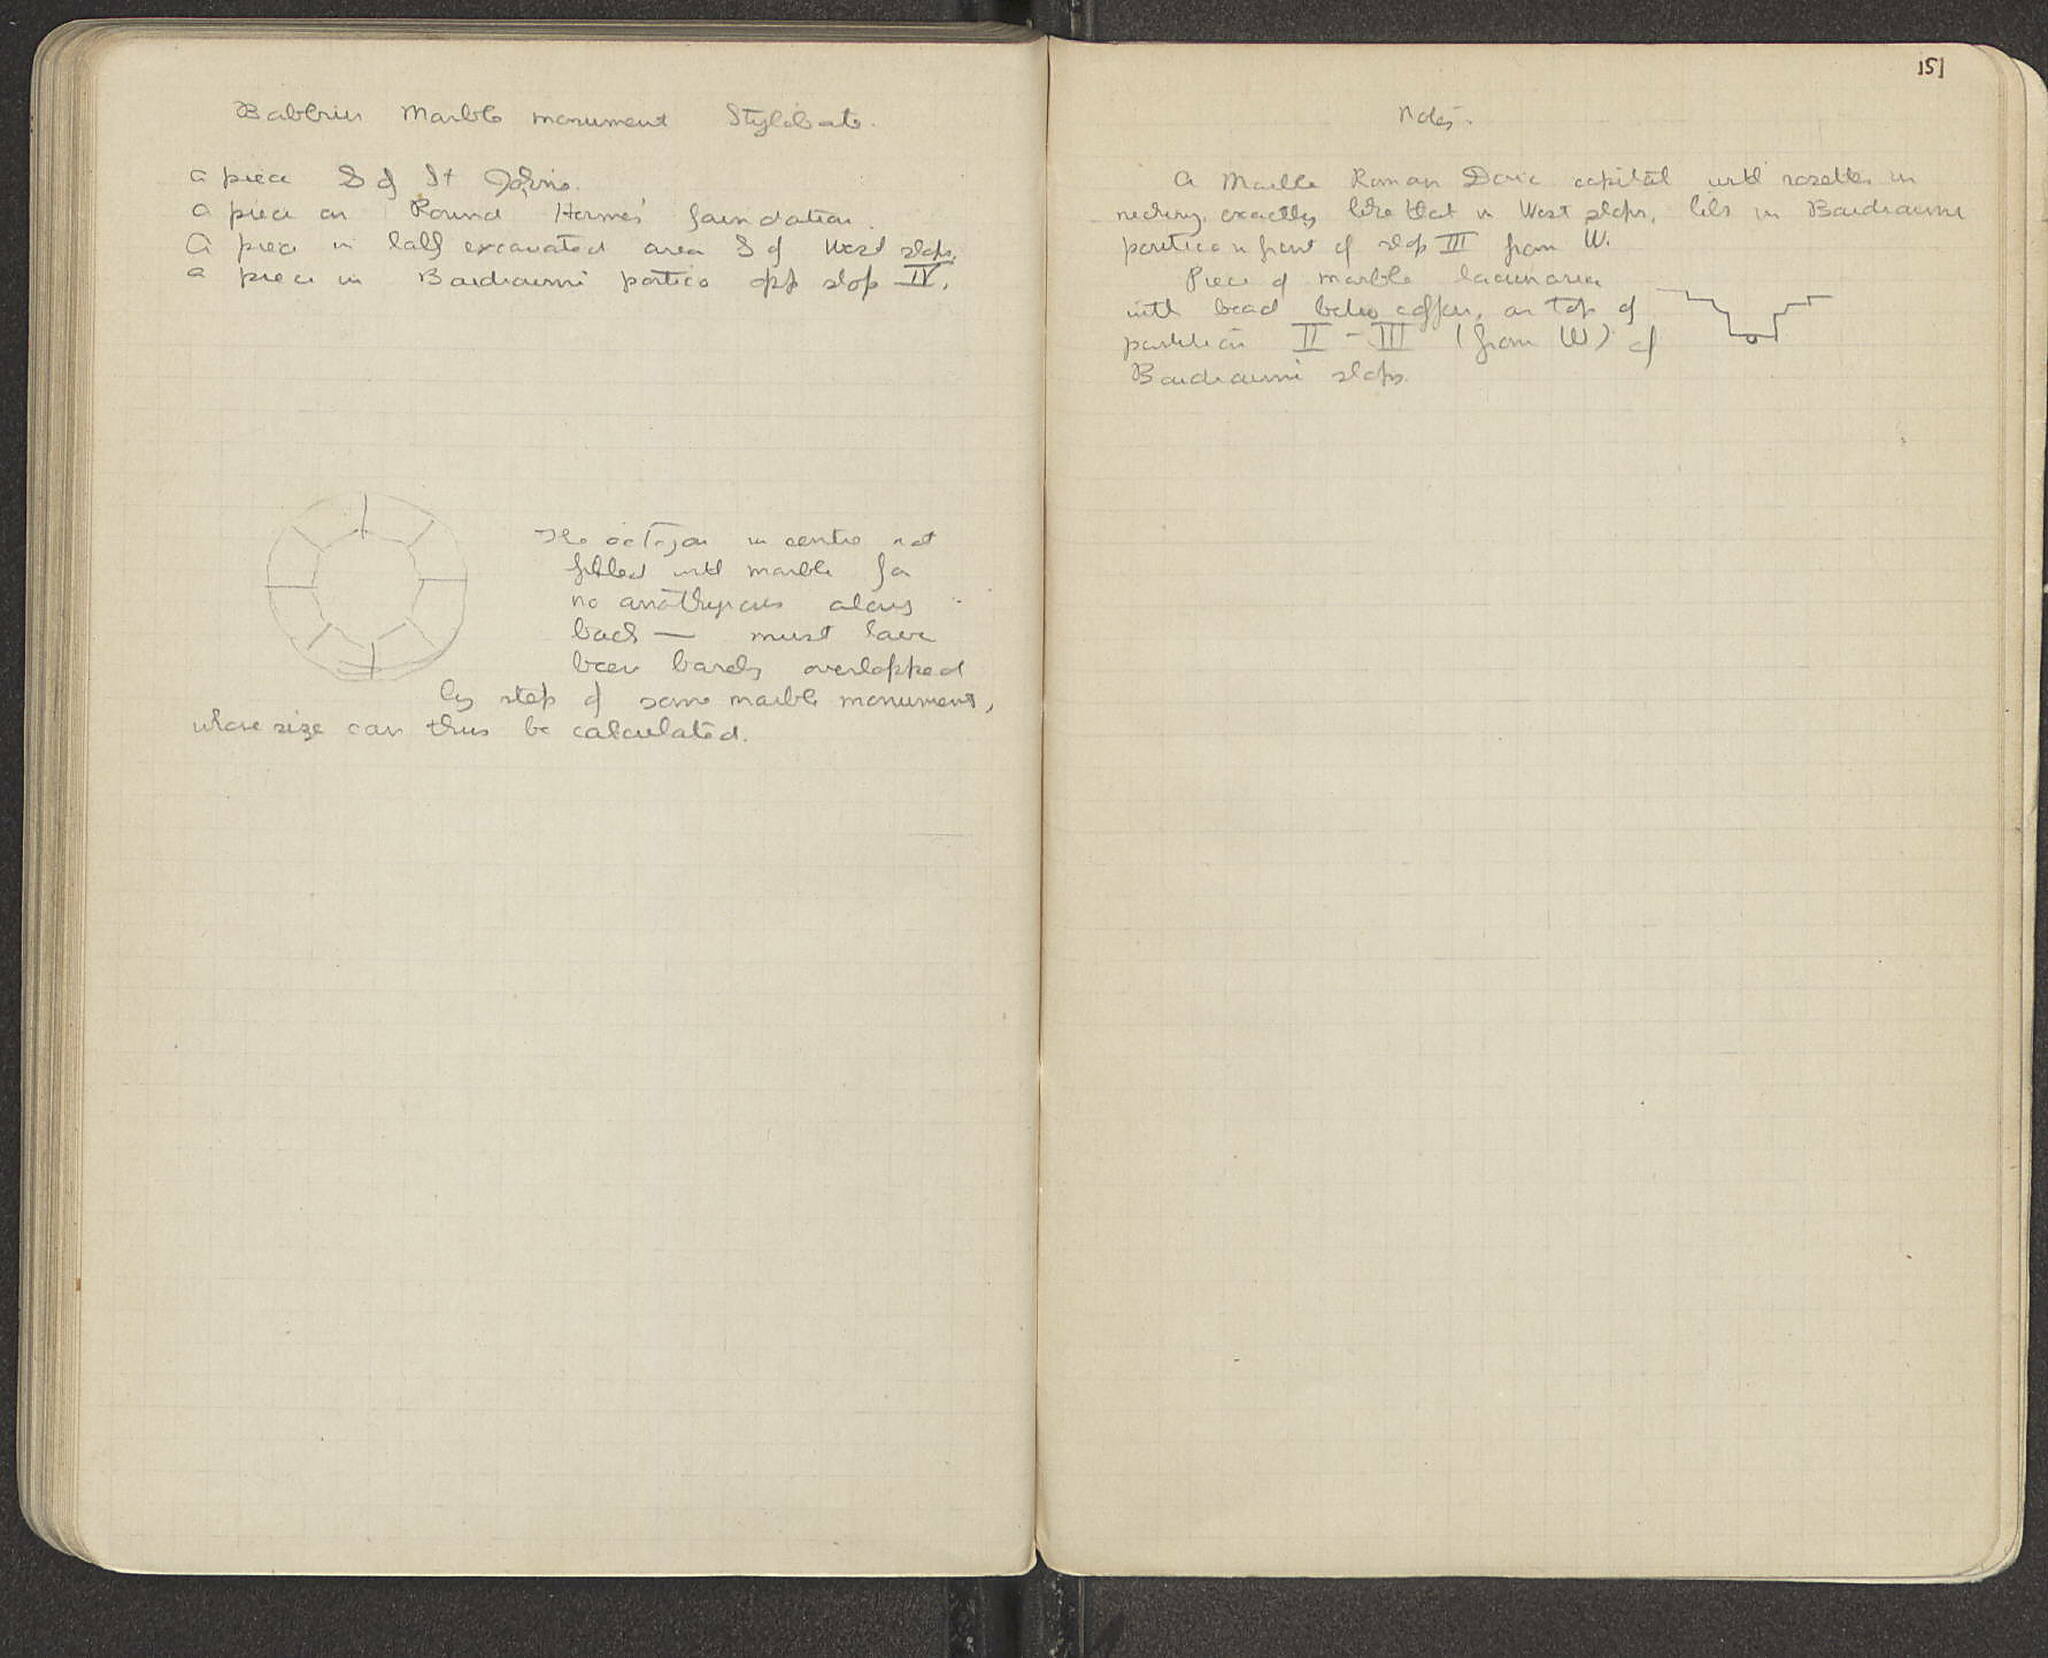 Babbius Marble monument Stylobate.
a piece S of St John's.
a piece on Round Hermes' foundation.
A piece in half excavated area S of West shops.
a piece in Boudroumi portico opp shop IV.
The octagon in centre not
filled with marble for
no anathyrosis along
back — must have
been barely overlapped
by step of some marble monument,
whose size can thus be calculated.
151
Notes.
A Marble Roman Doric capital with rosettes in
necking, exactly like that in West shops, lies in Boudroumi
portico in front of shop III from W.
Piece of marble lacunaria
with bead below coffer, on top of
partition II - III (from W) of
Boudroumi shops.